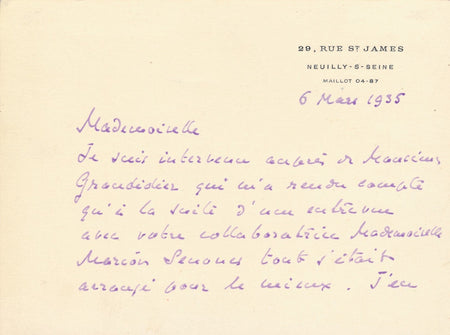 29, RUE ST JAMES
NEUILLY-S-SEINE
MAILLOT 04-87
6 Mars 1935
Mademoiselle
Je suis intervenu auprès de Monsieur
Grandidier qui m'a rendu compte
qu'à la suite d'une entrevue
avec votre collaboratrice Mademoiselle
Marion Senones tout s'était
arrangé pour le mieux. J'en